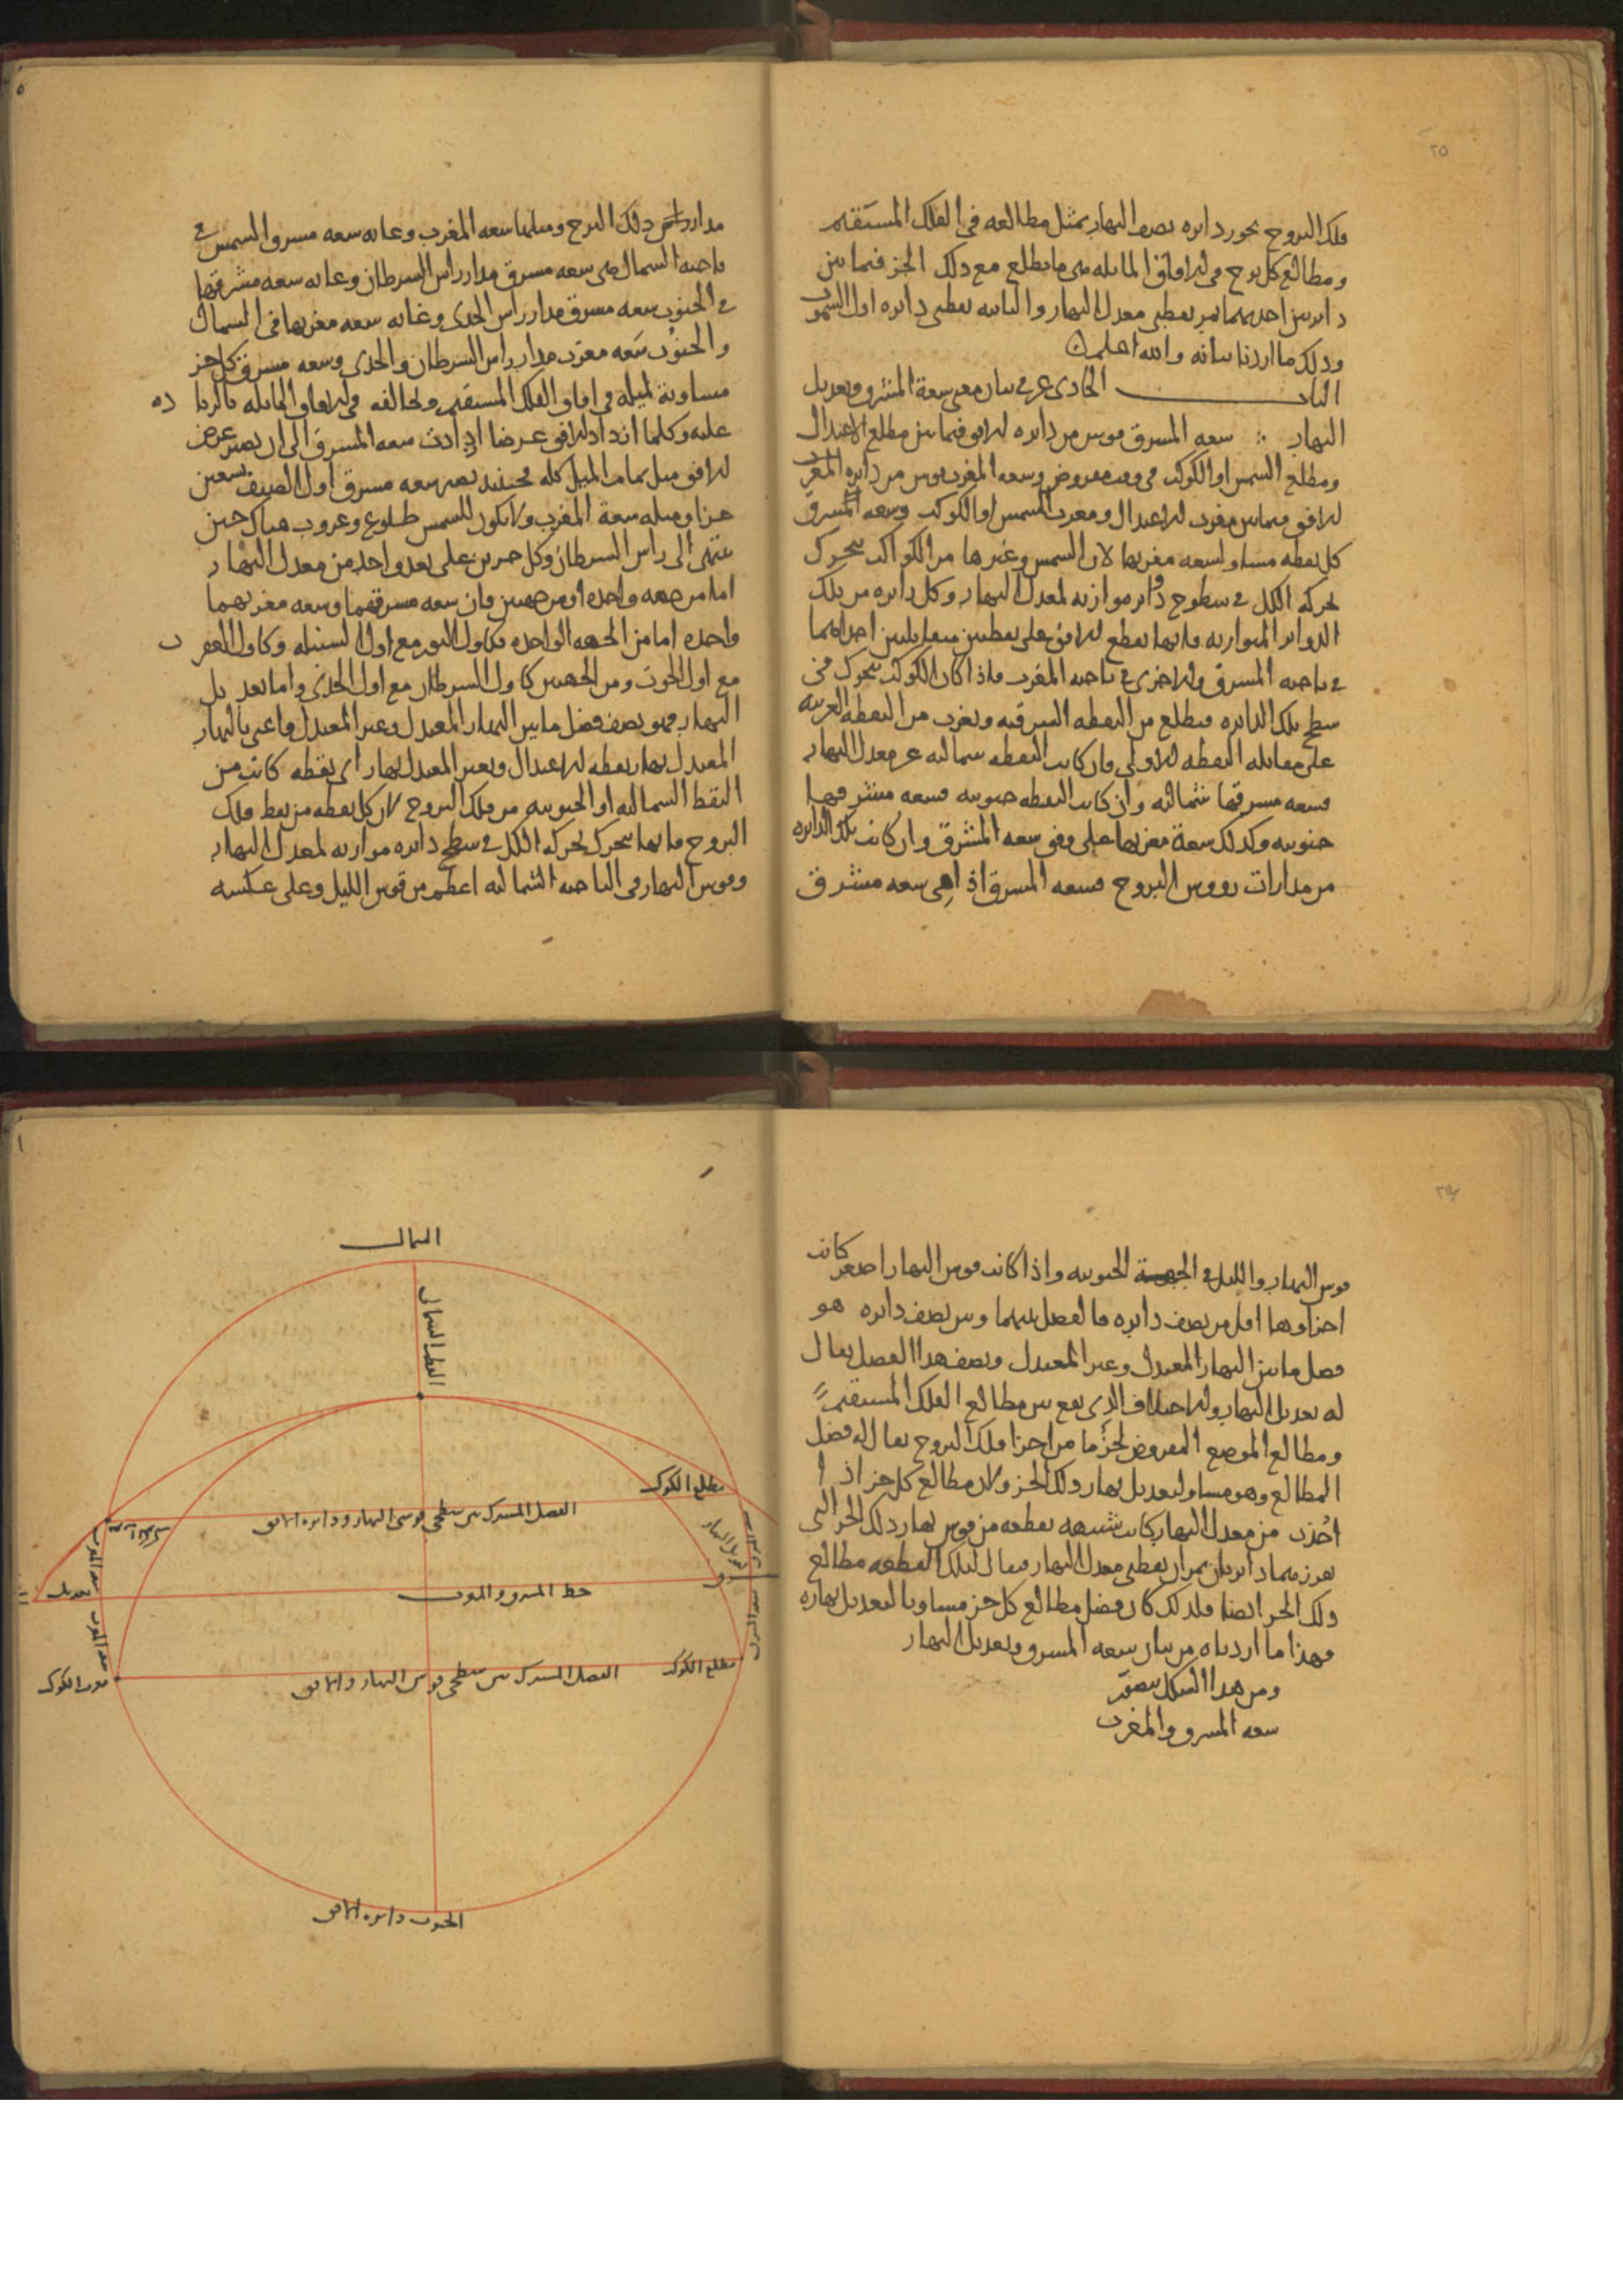 ٢٥
فلك البروج يحور دايره نصف النهار بمثل مطالعه في الفلك المستقيم
ومطالع كل برج في الافاق المايله هي ما يطلع مع ذلك الجز فيما بين
دايرتين احديهما تمر بقطبي معدل النهار والثانيه بقطبي دايره اول السموت
وذلك ما اردنا بيانه والله اعلم
الباب الحادي عشر في بيان معنى سعة المشرق وتعديل
النهار سعه المشرق قوس من دايره الافق فيما بين مطلع الاعتدال
ومطلع الشمس او الكوكب في وقت مفروض وسعه المغرب قوس من دايره
الافق فيما بين مغرب الاعتدال ومغرب الشمس او الكوكب وسعه المشرق
كل نقطه مساو لسعه مغربها لان الشمس وغيرها من الكواكب يتحرك
بحركه الكل في سطوح دواير موازيه لمعدل النهار وكل دايره من تلك
الدواير المتوازيه فانها تقطع الافق على نقطتين متقابلتين احداهما
في ناحيه المشرق والاخرى في ناحيه المغرب فاذا كان الكوكب يتحرك في
سطح تلك الدايره فيطلع من النقطه الشرقيه ويغرب من النقطه الغربيه
على مقابله النقطه الاولى فان كانت النقطه شماليه عن معدل النهار
فسعه مشرقها شماليه وان كانت النقطه جنوبيه فسعه مشرقها
جنوبيه وكذلك سعة مغربها على وفق سعه المشرق وان كانت تلك الدايره
من مدارات رووس البروج فسعه المشرق اذا هي سعه مشرق
مدار راس ذلك البرج ومثلها سعه المغرب وغايه سعه مشرق الشمس في
ناحيه الشمال هي سعه مشرق مدار راس السرطان وغايه سعه مشرقها
في الجنوب سعه مشرق مدار راس الجدي وغايه سعه مغربها في الشمال
والجنوب سعه مغرب مدار راس السرطان والجدي وسعه مشرق كل جز
مساوية لميله في افاق الفلك المستقيم ومخالفه في الافاق المايله بالزياده
عليه وكلما ازداد الافق عرضا ازدادت سعه المشرق الى ان يصير عرض
الافق مثل تمام الميل كله فحينئذ يصير سعه مشرق اول الصيف تسعين
جزا ومثله سعة المغرب ولا يكون للشمس طلوع وغروب هناك حين
ينتهي الى راس السرطان وكل جزين على بعد واحد من معدل النهار
اما من جهه واحده او من جهتين فان سعه مشرقهما وسعه مغربهما
واحده اما من الجهه الواحده فكاول الثور مع اول السنبله وكاول العقرب
مع اول الحوت ومن الجهتين كاول السرطان مع اول الجدي واما تعديل
النهار فهو نصف فضل ما بين النهار المعتدل وغير المعتدل واعني بالنهار
المعتدل نهار نقطه الاعتدال وبغير المعتدل نهار اي نقطه كانت من
النقط الشماليه او الجنوبيه من فلك البروج لان كل نقطه من نقط فلك
البروج فانها تتحرك بحركه الكل في سطح دايره موازيه لمعدل النهار
وقوس النهار في الناحيه الشماليه اعظم من قوس الليل وعلى عكسه
قوس النهار والليل في الجهة الجنوبيه واذا كانت قوس النهار اصغر كانت
اجزاوها اقل من نصف دايره فالفضل بينهما وبين نصف دايره هو
فضل ما بين النهار المعتدل وغير المعتدل ونصف هذا الفضل يقال
له تعديل النهار والاختلاف الذي يقع بين مطالع الفلك المستقيم
ومطالع الموضع المفروض لجز ما من اجزا فلك البروج يقال له فضل
المطالع وهو مساو لتعديل نهار ذلك الجز ولان مطالع كل جز اذا
اخذت من معدل النهار كانت شبيهه بقطعه من قوس نهار ذلك الجز التي
يفرزها دايرتان تمران بقطبي معدل النهار فيقال لتلك القطعه مطالع
ذلك الجز ايضا فلذلك كان فضل مطالع كل جز مساويا لتعديل نهاره
فهذا ما اردناه من بيان سعه المشرق وتعديل النهار
ومن هذا الشكل يتصور
سعه المشرق والمغرب
الشمال
القطب الشمالي
مطلع الكوكب
الفصل المشترك بين سطحي قوسي النهار ودايره الافق
سعه المغرب
تعديل النهار
خط المشرق والمغرب
تعديل
سعه المغرب
سعه المشرق
مطلع الكوكب
الفصل المشترك بين سطحي قوس النهار والافق
مغرب الكوكب
الجنوب دايره الافق